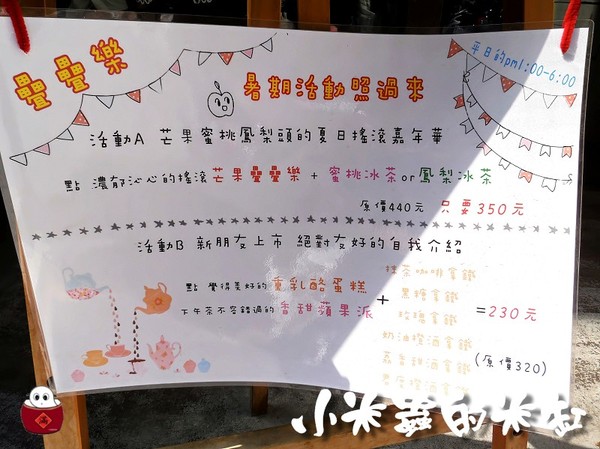 疊疊樂
暑期活動照過來
平日的pm1:00-6:00
活動A 芒果蜜桃鳳梨頭的夏日搖滾嘉年華
點 濃郁沁心的搖滾芒果疊疊樂 + 蜜桃冰茶or鳳梨冰茶
原價440元 只要350元
活動B 新朋友上市 絕對友好的自我介紹
點 覺得美好的重乳酪蛋糕
下午茶不容錯過的香甜蘋果派
+
抹茶咖啡拿鐵
黑糖拿鐵
奶油榛酒拿鐵
=230元
(原價320)
小米蟲的米缸